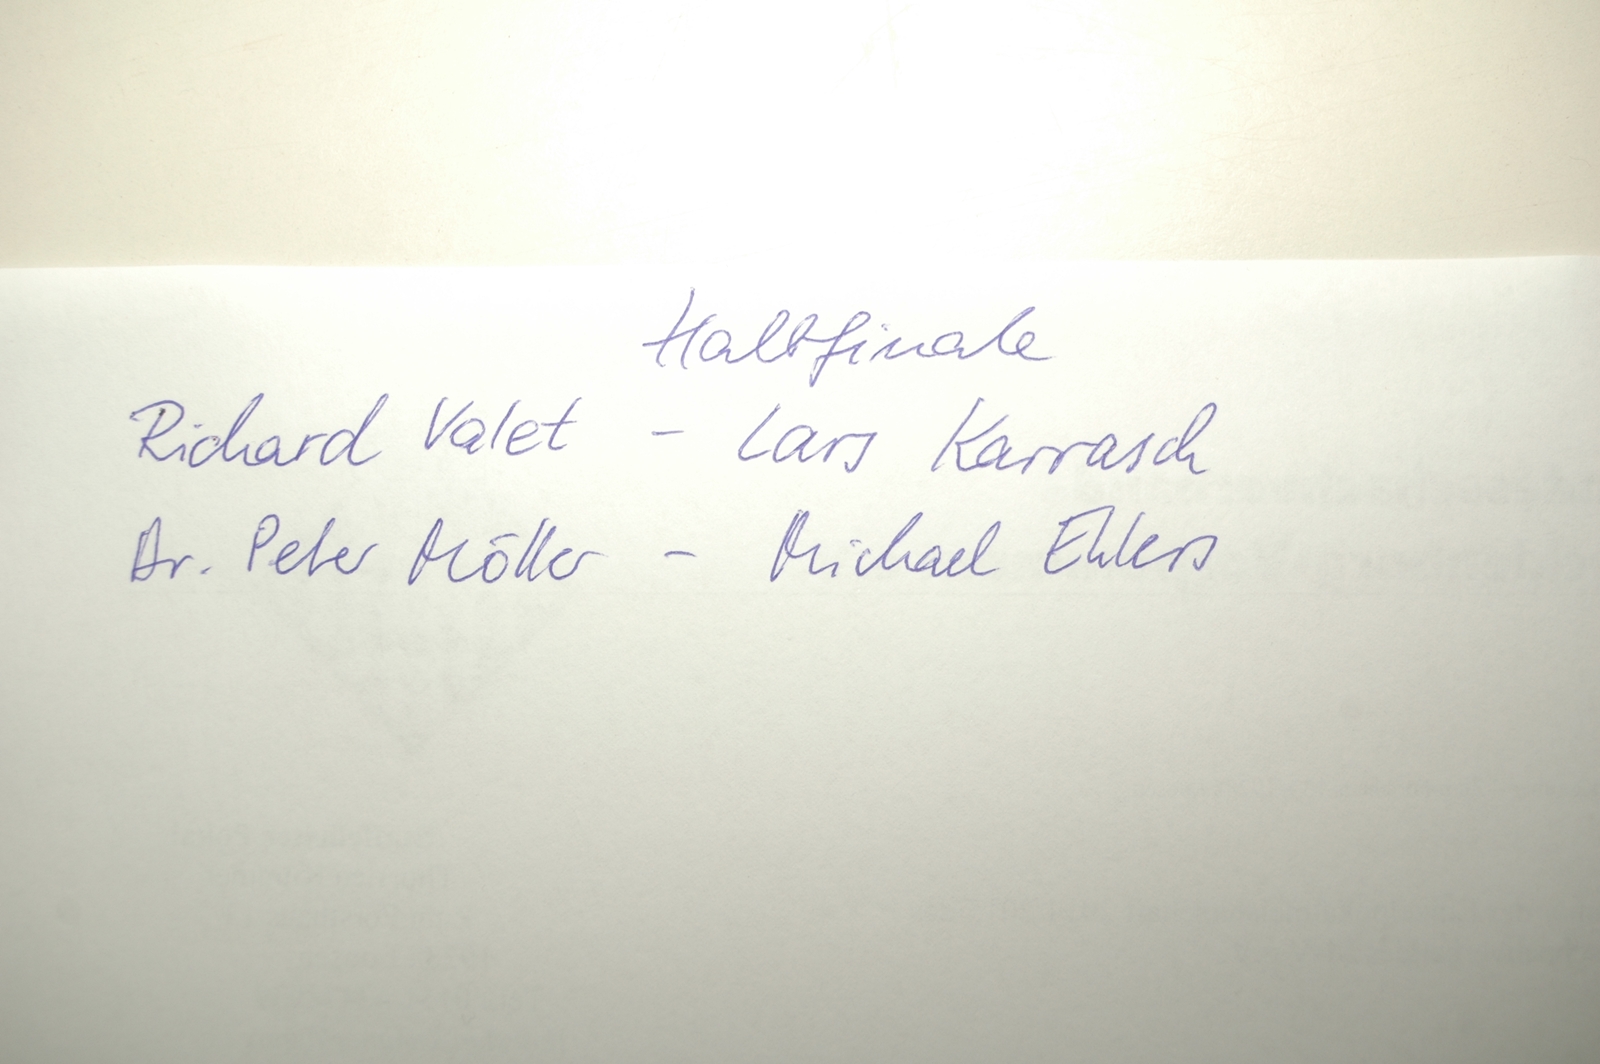 Halbfinale
Richard Valet - Lars Karrasch
Dr. Peter Möller - Michael Ehlers